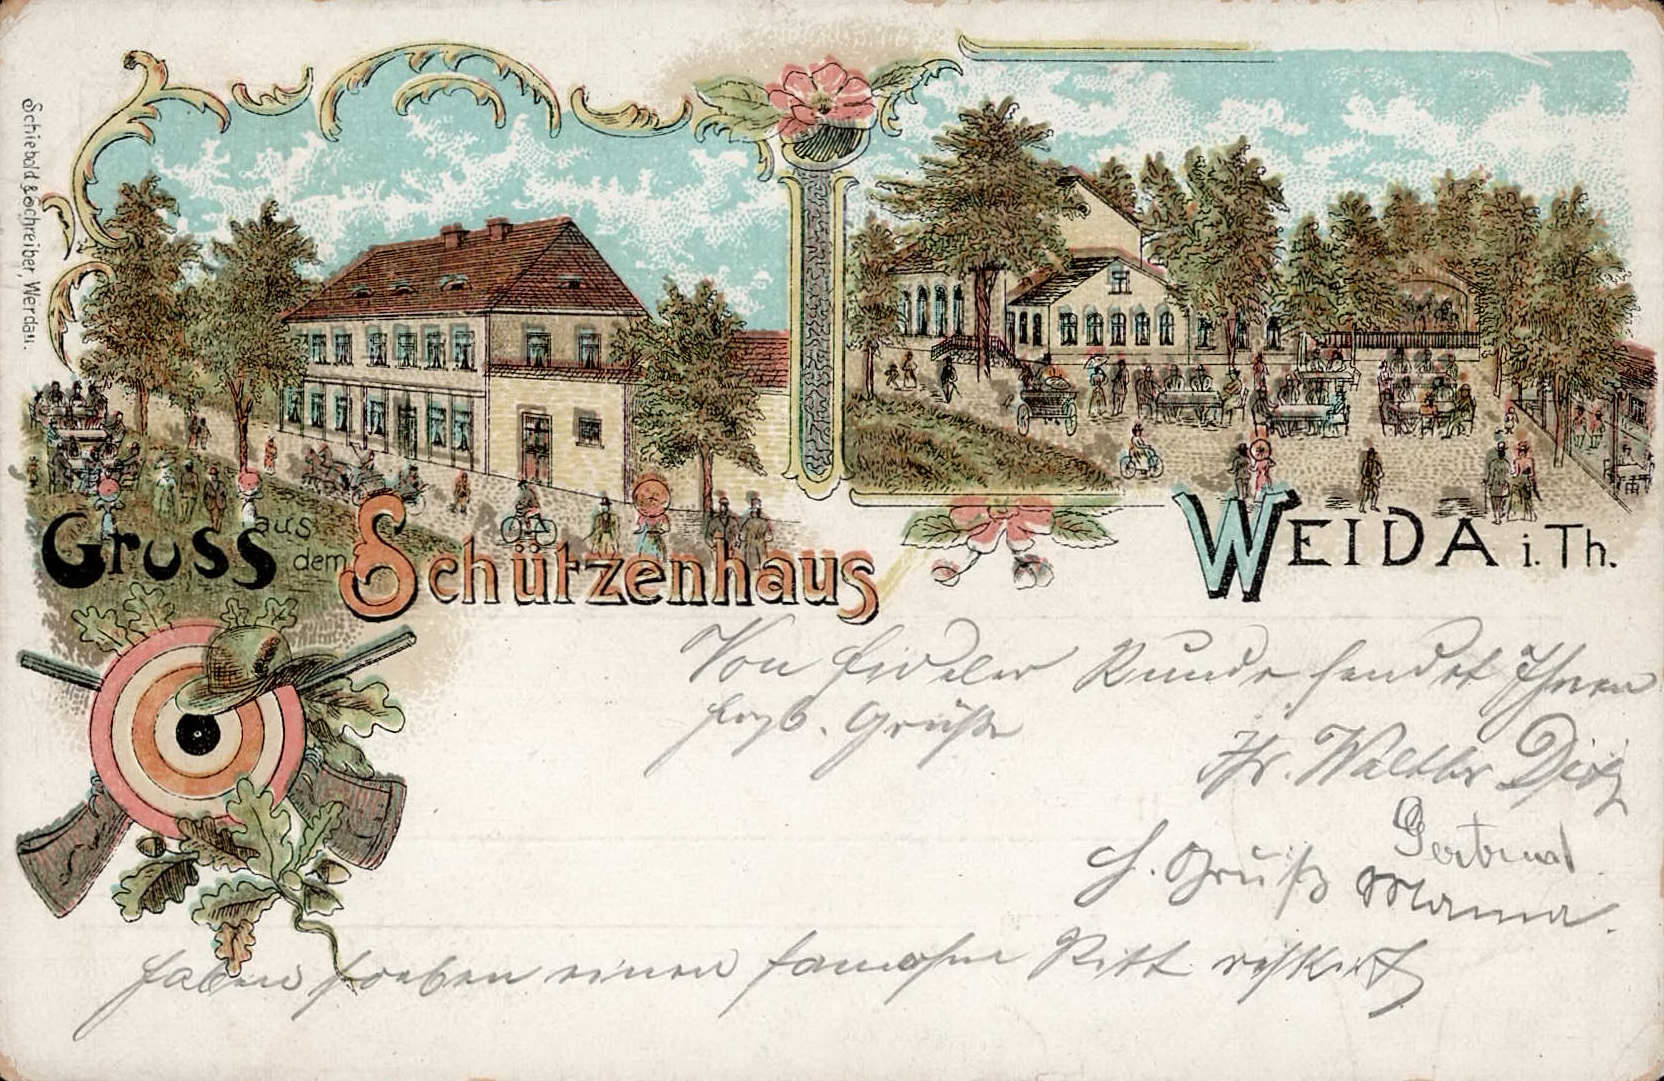 Schiebold & Schreiber, Werdau.
Gruss aus dem Schützenhaus
WEIDA i. Th.
Von fideler Runde sendet Ihnen
herzl. Grüße
Ihr. Walther
Gertrud
H. Gruß Mama.
haben soeben einen famosen Ritt riskirt